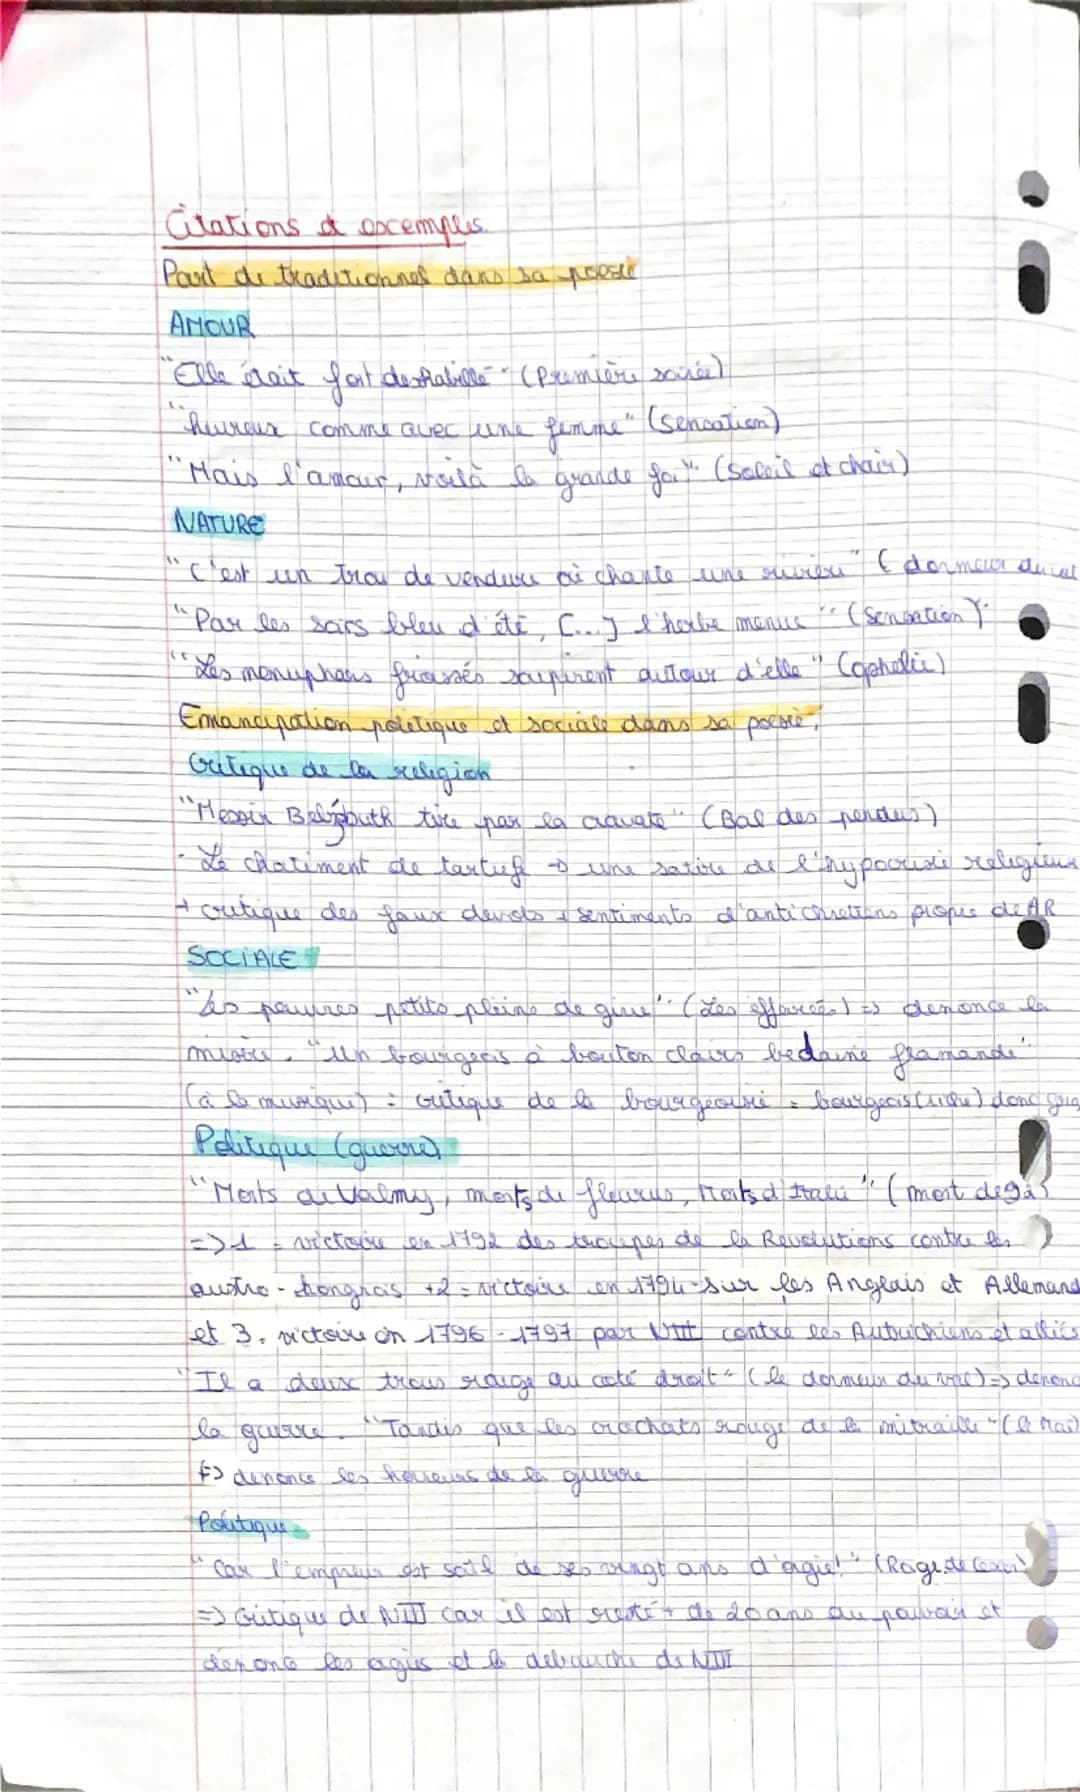 Citations et excemples
Part de traditionnel dans sa poesie
AMOUR
"Elle était fort deshabillé" (Première soirée)
"heureux comme avec une femme" (Sensation)
"Mais l'amour, voilà la grande foi" (Soleil et chair)
NATURE
"C'est un trou de verdure où chante une rivière" (dormeur du val
"Par les soirs bleu d'été, [...] l'herbe menus" (Sensation)
"Les menuphars froissés soupirent autour d'elle" (ophelie)
Emancipation politique et sociale dans sa poesie,
Critique de la religion
"Messir Belzébuth tire par la cravate" (Bal des pendus)
- Le chatiment de tartufe → une satire de l'hypocrisie religieux
+ critique des faux devots + sentiments d'antichretiens propre de AR
SOCIALE
"Les pauvres petits pleins de givre" (Les effarés) => denonce la
misère. "Un bourgeois à bouton clairs bedaine flamande"
(à la musique) : critique de la bourgeoisie = bourgeois (riche) donc
Politique (guerre)
"Morts de Valmy, morts de fleurus, Morts d'Italie" (mort de 92)
=> 1 = victoire en 1792 des troupes de la Revolutions contre les
austro-hongrois +2 = victoire en 1794 sur les Anglais et Allemand
et 3. victoire en 1796-1797 par NIII contre les Autrichiens et alliés
"Il a deux trous rouge au coté droit" (le dormeur du val) => denonc
la guerre. "Tandis que les crachats rouge de la mitraille" (le mal)
=> denonce les horreurs de la guerre
Politique
"Car l'empreur est soûl de ses vingt ans d'orgie!" (Rage de Cesar)
=> Critique de NIII car il est resté + de 20 ans au pouvoir et
denonce les orgies et la debauche de NIII